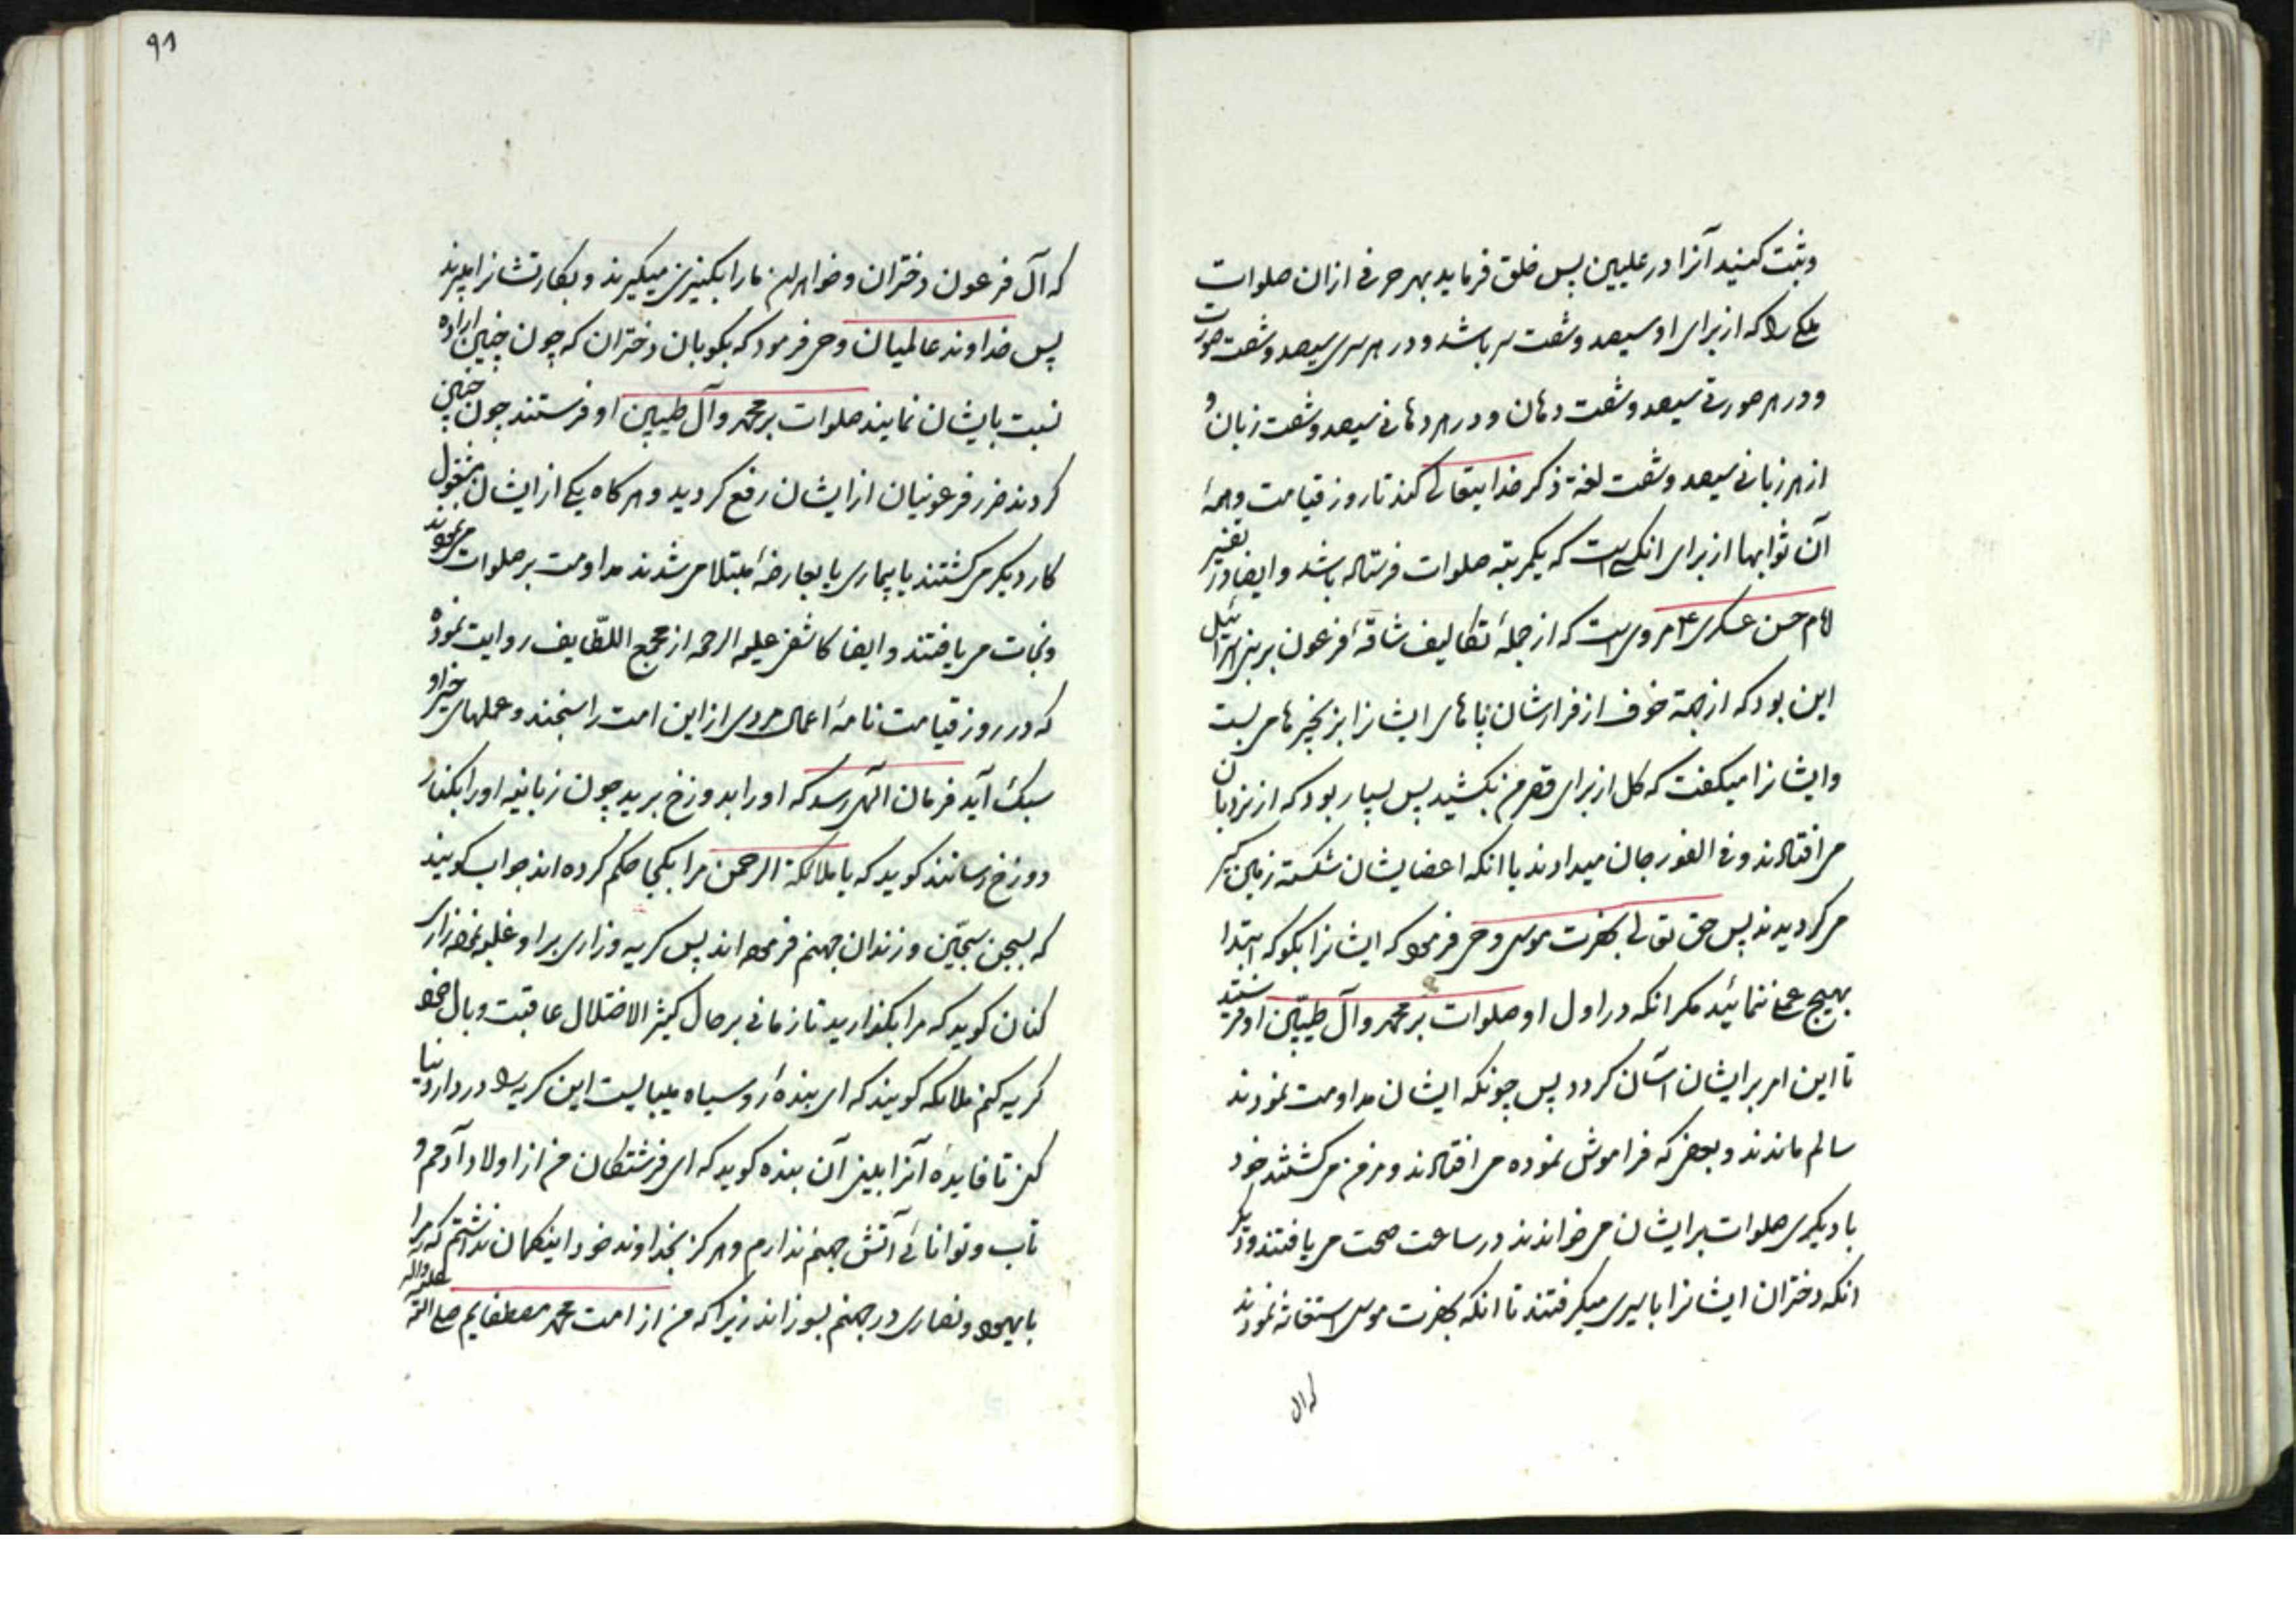 وثبت کنید آنرا در علیین پس خلق فرماید بهر حرفی از ان صلوات
ملکی را که از برای او سیصد و شصت سر باشد و در هر سری سیصد و شصت صورت
و در هر صورتی سیصد و شصت دهان و در هر دهانی سیصد و شصت زبان و
از هر زبانی سیصد و شصت لغة ذکر خدایتعالی کند تا روز قیامت و همهٔ
آن ثوابها از برای انکسی است که یکمرتبه صلوات فرستاده باشد و ایضا در تفسیر
امام حسن عسکری ع مروی است که از جملهٔ تکالیف شاقهٔ فرعون بر بنی اسرائیل
این بود که از جهة خوف از فرارشان پاهای ایشانرا بزنجیرها می بست
و ایشانرا میکفت که کل از برای قصر من بکشید پس بسیار بود که از نردبان
می افتادند و فی الفور جان میدادند یا انکه اعضایشان شکسته زمین کیر
می کردیدند پس حق تعالی بحضرت موسی وحی فرمود که ایشانرا بکو که ابتدا
بهیچ عملی ننمائید مکر انکه در اول او صلوات بر محمد و آل طیبین او فرستید
تا این امر بر ایشان آسان کردد پس چونکه ایشان مداومت نمودند
سالم ماندند و بعضی که فراموش نموده می افتادند و مزمن می کشتند خود
یا دیکری صلوات بر ایشان می خواندند در ساعت صحت می یافتند و دیکر
انکه دختران ایشانرا باسیری میکرفتند تا انکه بحضرت موسی استغاثه نمودند
که ال
۹۱
که آل فرعون دختران و خواهران ما را بکنیزی میکیرند و بکارتشانرا میبرند
پس خداوند عالمیان وحی فرمود که بکو بان دختران که چون چنین اراده
نسبت بایشان نمایند صلوات بر محمد و آل طیبین او فرستند چون چنین
کردند ضرر فرعونیان از ایشان رفع کردید و هر کاه یکی از ایشان مشغول
کار دیکر می کشتند یا بیماری یا بعارضهٔ مبتلا می شدند مداومت بر صلوات می نمودند
و نجات می یافتند و ایضا کاشفی علیه الرحمه از مجمع اللطایف روایت نموده
که در روز قیامت نامهٔ اعمال مردی از این امت را سنجند و عملهای خیر او
سبک آید فرمان الهی رسد که او را بدوزخ برید چون زبانیه او را بکنار
دوزخ رسانند کوید که یا ملائکة الرحمن مرا بکجا حکم کرده اند جواب کویند
که بسجن سجّین و زندان جهنم فرموده اند پس کریه و زاری بر او غلبه نموده زاری
کنان کوید که مرا بکذارید تا زمانی بر حال کثیر الاختلال عاقبت وبال خود
کریه کنم ملائکه کویند که ای بندهٔ رو سیاه میبایست این کریه را در دار دنیا
کنی تا فایدهٔ آنرا ببینی آن بنده کوید که ای فرشتکان من از اولاد آدمم و
تاب و توانائی آتش جهنم ندارم و هرکز بخداوند خود اینکمان نداشتم که مرا
با یهود و نصاری در جهنم بسوزاند زیرا که من از امت محمد مصطفایم صلی الله علیه و اله